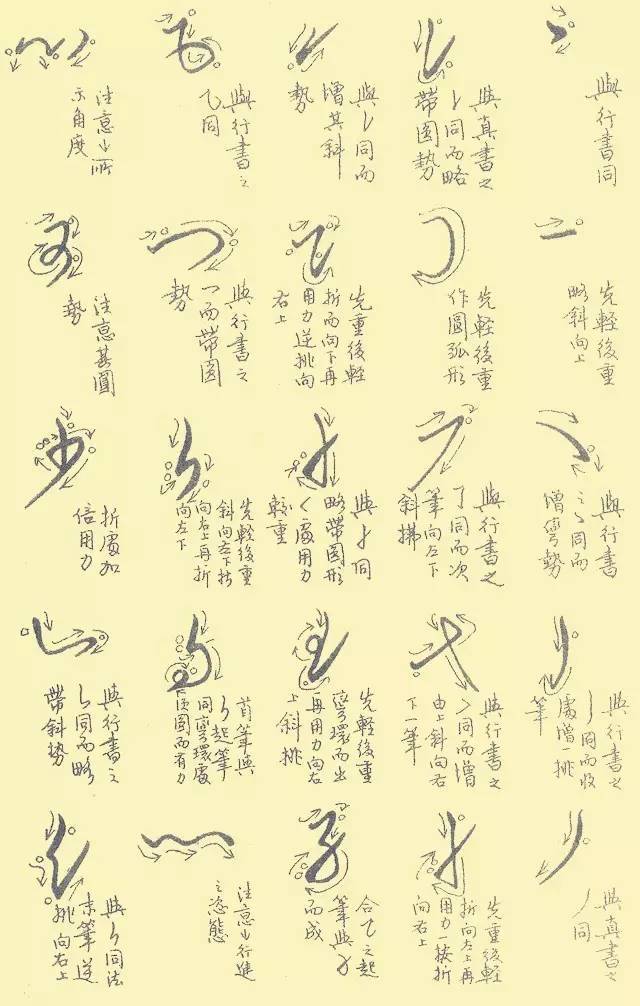 與行書同
與真書之
㇙同而略
帶圓勢
與㇙同而
增其斜
勢
與行書之
乁同
注意㇢所
示角度
先輕後重
略斜向上
先輕後重
作圓弧形
先重後輕
折而向下再
用力逆挑向
右上
與行書之
乛而帶圓
勢
注意其圓
勢
與行書
之㇏同而
增彎勢
與行書之
了同而次
筆向左下
斜拂
同
略帶圓形
處用力
較重
先輕後重
斜向左下折
向右上再折
向左下
折處加
倍用力
與行書之
丿同而收
處增一挑
筆
與行書之
同而增
由上斜向右
下一筆
先輕後重
彎環而出
再用力向右
上斜挑
首筆與
起筆
同彎環處
須圓而有力
與行書之
㇙同而略
帶斜勢
與真書之
丿同
先重後輕
折向左上再
用力一按折
向右上
合乙之起
筆與
而成
注意㇢行進
之姿態
與㇉同法
末筆逆
挑向右上